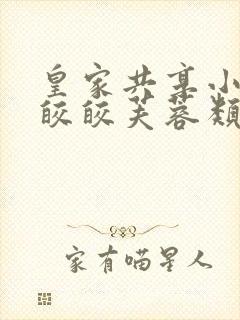 皇家共享小
皎皎芙蓉类
家有喵星人